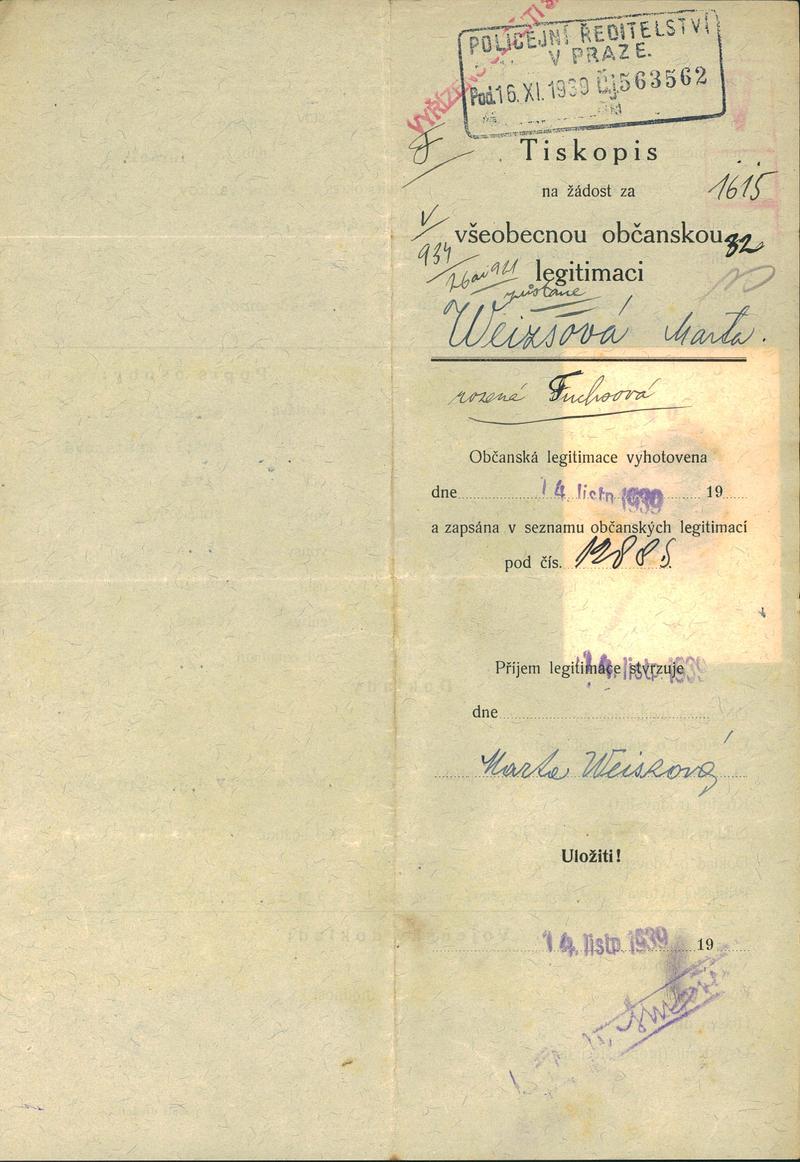 POLICEJNÍ ŘEDITELSTVÍ
V PRAZE.
Pod. 16. XI. 1939 Čj 563562
Tiskopis
na žádost za
1615
V
934
všeobecnou občanskou
32
legitimaci
zůstane
Weizsová Marta.
rozená Fuchsová
Občanská legitimace vyhotovena
dne 14. listp. 1939 19
a zapsána v seznamu občanských legitimací
pod čís. 12885.
Příjem legitimace stvrzuje
14. listp. 1939
dne
Marta Weiszová
Uložiti!
14. listp. 1939 19